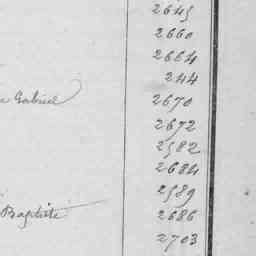 2645
2660
2664
244
n Gabriel 2670
2672
2582
2684
2589
Baptiste 2686
2703